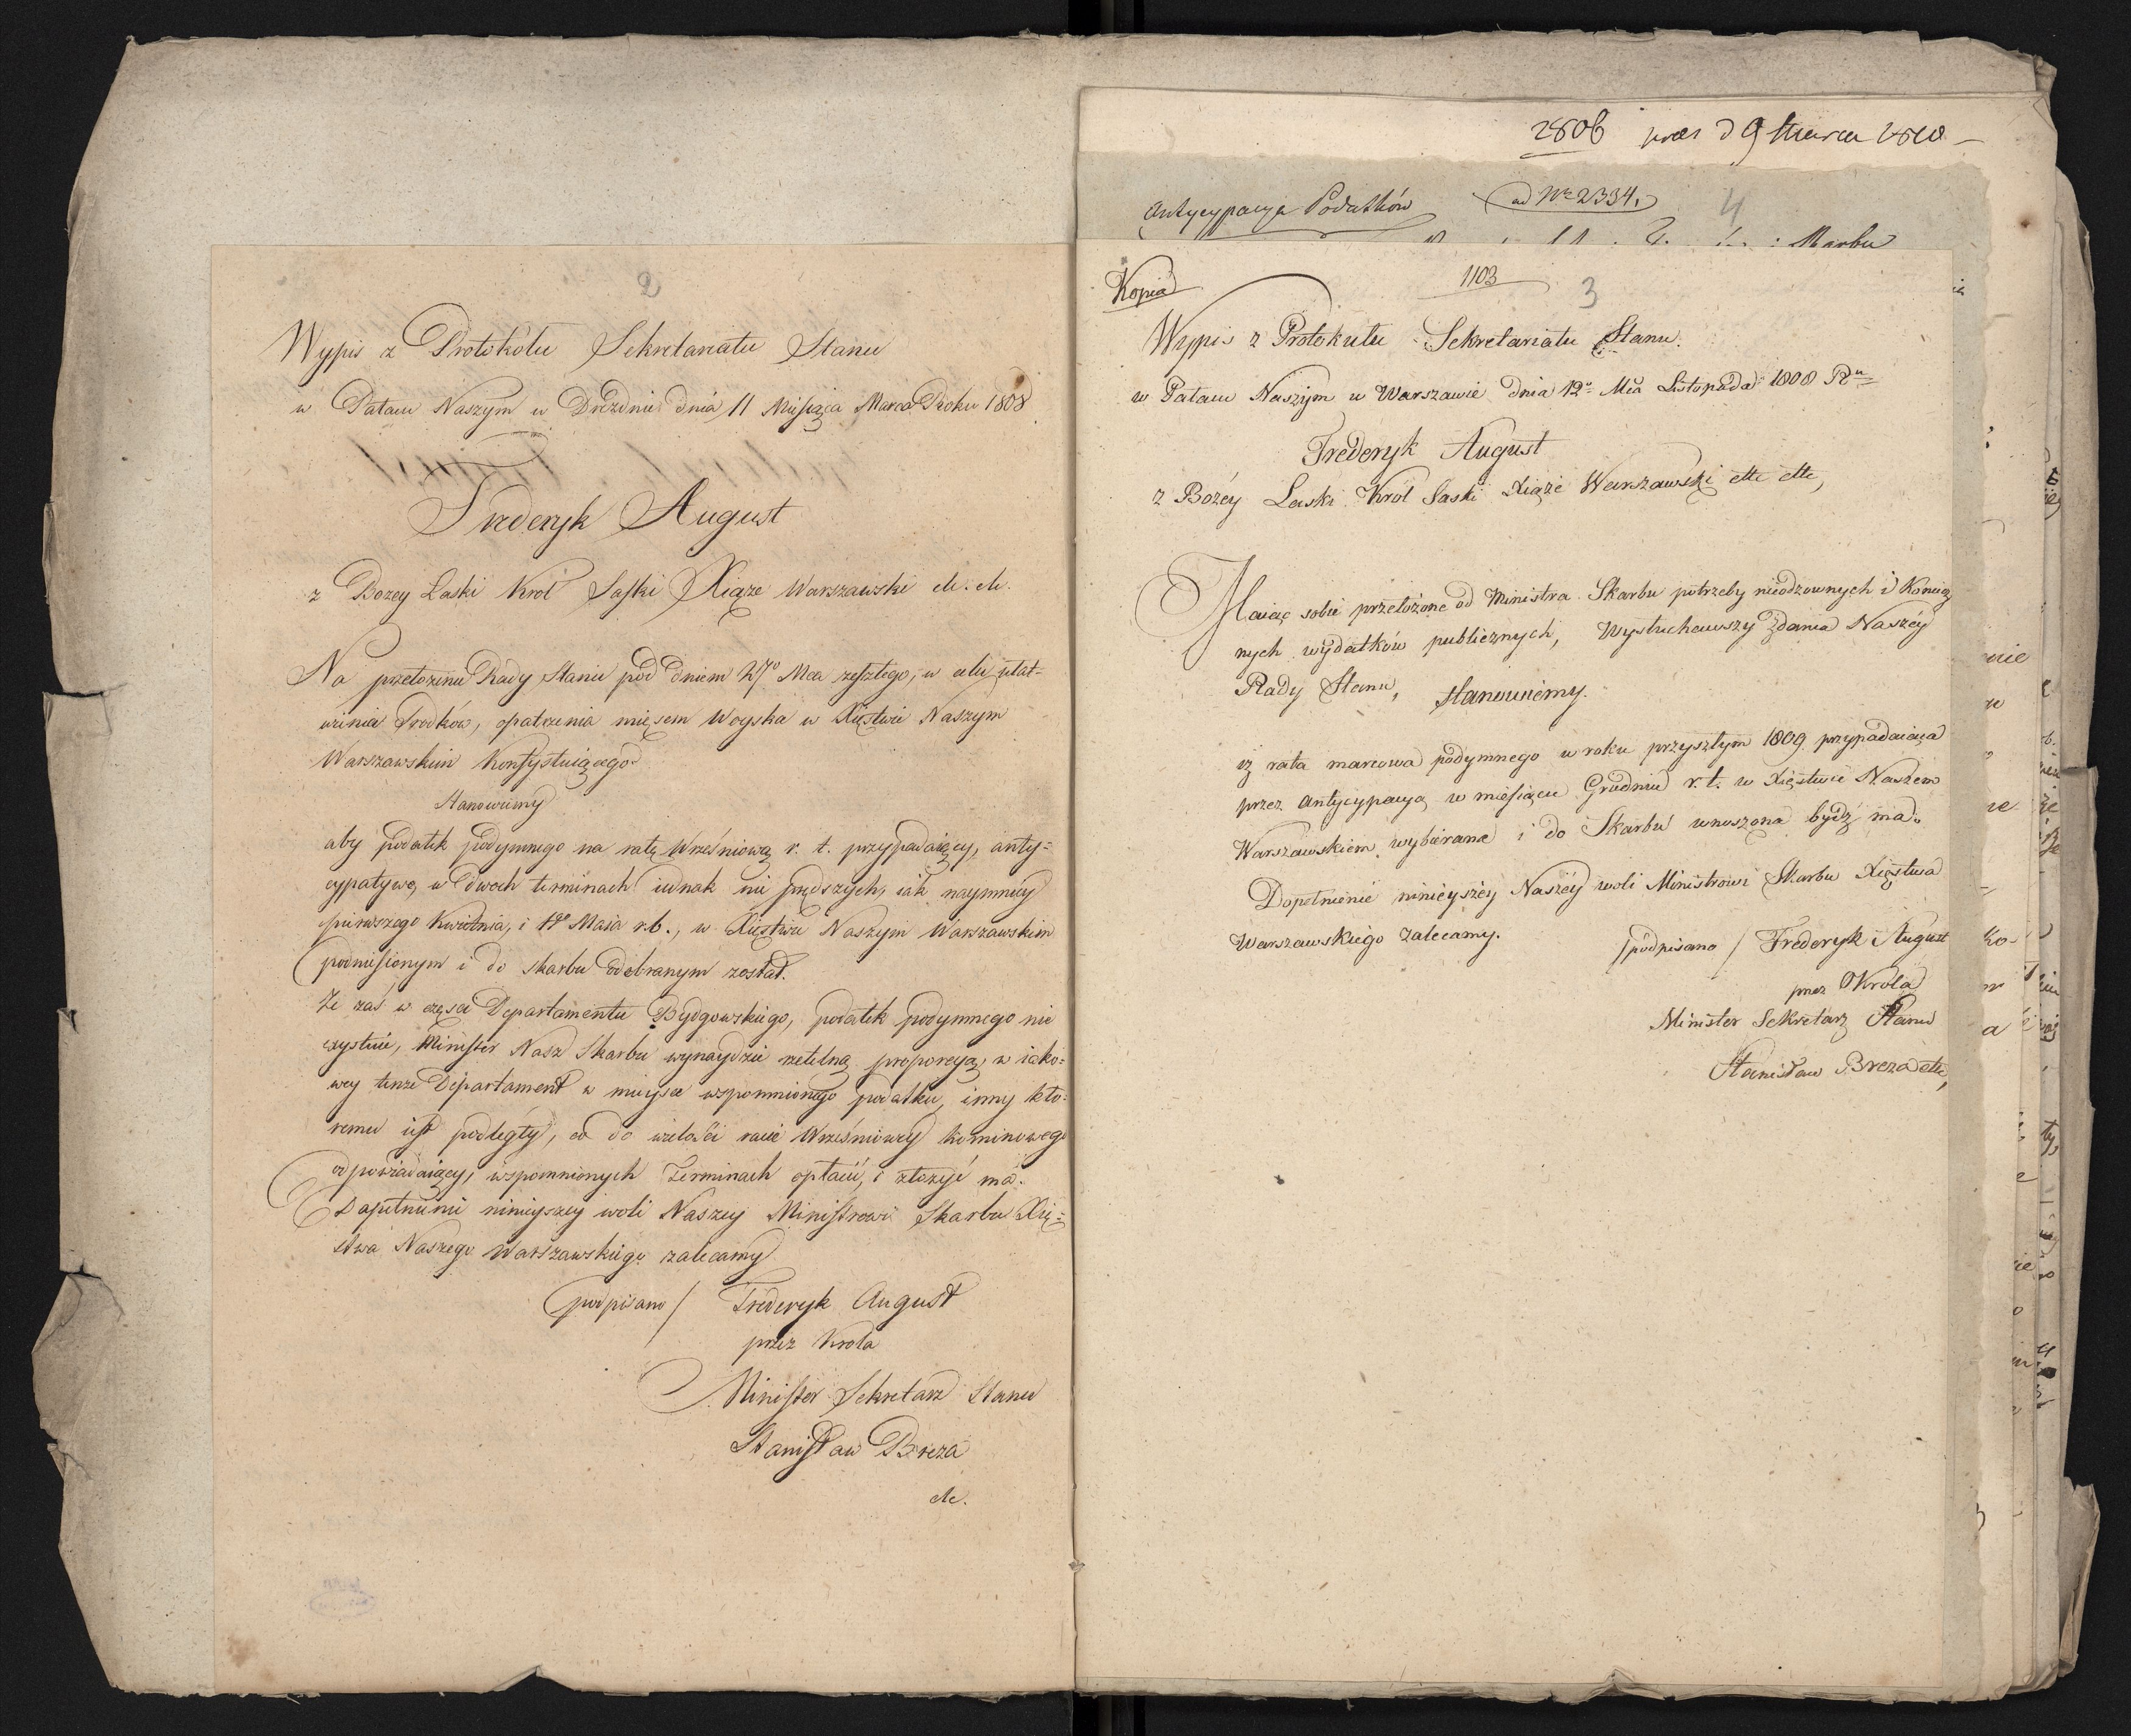 2
Wypis z Protokółu Sekretariatu Stanu
w Pałacu Naszym w Dreźnie dnia 11 Miesiąca Marca Roku 1808
Frederyk August
z Bozey Łaski Krol Saski Xiąże Warszawski etc. etc.
Na przełożenie Rady Stanu pod dniem 27º Mca zeszłego, w celu ułat-
wienia srodków, opatrzenia mięsem Woyska w Xięstwie Naszym
Warszawskim Konsystuiącego
Stanowiemy
aby podatek podymnego na ratę Wrześniową r. t. przypadaiący, anty-
cypatywę, w dwoch terminach iednak nie prędszych, iak naymniey
pierwszego Kwietnia, i 1go Maia r.b., w Xięstwie Naszym Warszawskim
podniesionym i do skarbu odebranym został.
Ze zaś w części Departamentu Bydgowskiego, podatek podymnego nie
exystuie, Minister Nasz Skarbu wynaydzie rzetelną proporcyą, w iako-
wey tenże Departament w mieysce wspomnionego podatku, inny któ-
remu iest podległy, co do wielości racie Wrześniowey kominowego
odpowiadaiący, wspomnionych Terminach opłacić, i złożyć ma.
Dopełnienie ninieyszey woli Naszey Ministrowi Skarbu Xię-
stwa Naszego Warszawskiego zalecamy
podpisano / Frederyk August
przez Krola
Minister Sekretarz Stanu
Stanisław Breza
etc.
2806 prez d 9 Marca 1810
Antycypacya Podatków ad Nr 2334. 4
Skarbu
Kopia 1103 3
Wypis z Protokułu Sekretariatu Stanu.
w Pałacu Naszym w Warszawie dnia 12º Mca Listopada 1808 Ru
Frederyk August
z Bożéy Łaski Król Saski Xiąże Warszawski etc etc,
Maiąc sobie przełożone od Ministra Skarbu potrzeby nieodzownych i Koniecz
nych wydatków publicznych, Wysłuchawszy zdania Naszéy
Rady Stanu, stanowiemy.
iż rata marcowa podymnego w roku przyszłym 1809 przypadaiąca
przez antycypacyą w miesiącu Grudniu r. t. w Xięstwie Naszem
Warszawskiem wybierana i do Skarbu wnoszona bydź ma.
Dopełnienie ninieyszéy Naszéy woli Ministrowi Skarbu Xięstwa
Warszawskiego zalecamy.
/podpisano/ Frederyk August
przez Króla
Minister Sekretarz Stanu
Stanisław Breza etc,